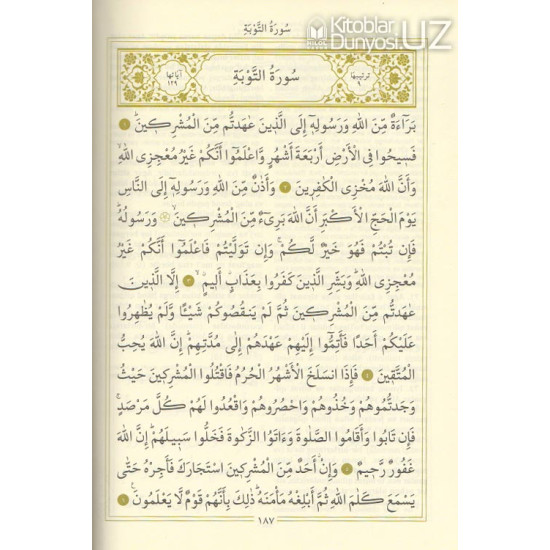 Kitoblar
Dunyosi.UZ
سُورَةُ التَّوْبَةِ
ترتيبها
٩
سُورَةُ التَّوْبَةِ
آياتها
١٢٩
بَرَآءَةٌ مِّنَ اللّٰهِ وَرَسُولِهٖٓ إِلَى الَّذِينَ عٰهَدتُّم مِّنَ الْمُشْرِكِينَ ۗ ١
فَسِيحُوا فِي الْأَرْضِ أَرْبَعَةَ أَشْهُرٍ وَّاعْلَمُوٓا أَنَّكُمْ غَيْرُ مُعْجِزِي اللّٰهِ ۙ
وَأَنَّ اللّٰهَ مُخْزِي الْكٰفِرِينَ ٢ وَأَذٰنٌ مِّنَ اللّٰهِ وَرَسُولِهٖٓ إِلَى النَّاسِ
يَوْمَ الْحَجِّ الْأَكْبَرِ أَنَّ اللّٰهَ بَرِيٓءٌ مِّنَ الْمُشْرِكِينَ ۙ وَرَسُولُهٗ ۗ
فَإِن تُبْتُمْ فَهُوَ خَيْرٌ لَّكُمْ ۚ وَإِن تَوَلَّيْتُمْ فَاعْلَمُوٓا أَنَّكُمْ غَيْرُ
مُعْجِزِي اللّٰهِ ۗ وَبَشِّرِ الَّذِينَ كَفَرُوا بِعَذَابٍ أَلِيمٍ ۙ ٣ إِلَّا الَّذِينَ
عٰهَدتُّم مِّنَ الْمُشْرِكِينَ ثُمَّ لَمْ يَنقُصُوكُمْ شَيْـًٔا وَّلَمْ يُظٰهِرُوا
عَلَيْكُمْ أَحَدًا فَأَتِمُّوٓا إِلَيْهِمْ عَهْدَهُمْ إِلٰى مُدَّتِهِمْ ۗ إِنَّ اللّٰهَ يُحِبُّ
الْمُتَّقِينَ ٤ فَإِذَا انسَلَخَ الْأَشْهُرُ الْحُرُمُ فَاقْتُلُوا الْمُشْرِكِينَ حَيْثُ
وَجَدتُّمُوهُمْ وَخُذُوهُمْ وَاحْصُرُوهُمْ وَاقْعُدُوا لَهُمْ كُلَّ مَرْصَدٍ ۚ
فَإِن تَابُوا وَأَقَامُوا الصَّلٰوةَ وَءَاتَوُا الزَّكٰوةَ فَخَلُّوا سَبِيلَهُمْ ۗ إِنَّ اللّٰهَ
غَفُورٌ رَّحِيمٌ ٥ وَإِنْ أَحَدٌ مِّنَ الْمُشْرِكِينَ اسْتَجَارَكَ فَأَجِرْهُ حَتّٰى
يَسْمَعَ كَلٰمَ اللّٰهِ ثُمَّ أَبْلِغْهُ مَأْمَنَهٗ ۗ ذٰلِكَ بِأَنَّهُمْ قَوْمٌ لَّا يَعْلَمُونَ ۚ ٦
١٨٧